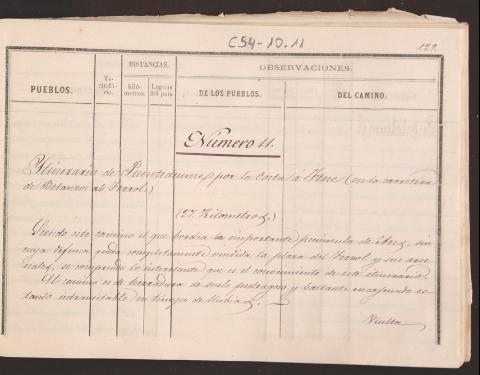 C54-10.11
129.
PUEBLOS.
Vecindario.
DISTANCIAS.
Kilómetros.
Leguas del país
OBSERVACIONES.
DE LOS PUEBLOS.
DEL CAMINO.
Número 11.
Itinerario de Puentedeume, por la Costa á Fene (en la carretera
de Betanzos al Ferrol)
(27 Kilómetros.)
Siendo este camino el que bordea la importante península de Ares, sin
cuya defensa queda completamente rendida la plaza del Ferrol y sus arse-
nales, se comprende lo interesante que es el conocimiento de este itinerario.
El camino es de herradura de suelo pedregoso y bastante encajonado es-
tando intransitable en tiempo de lluvias.
Vuelta